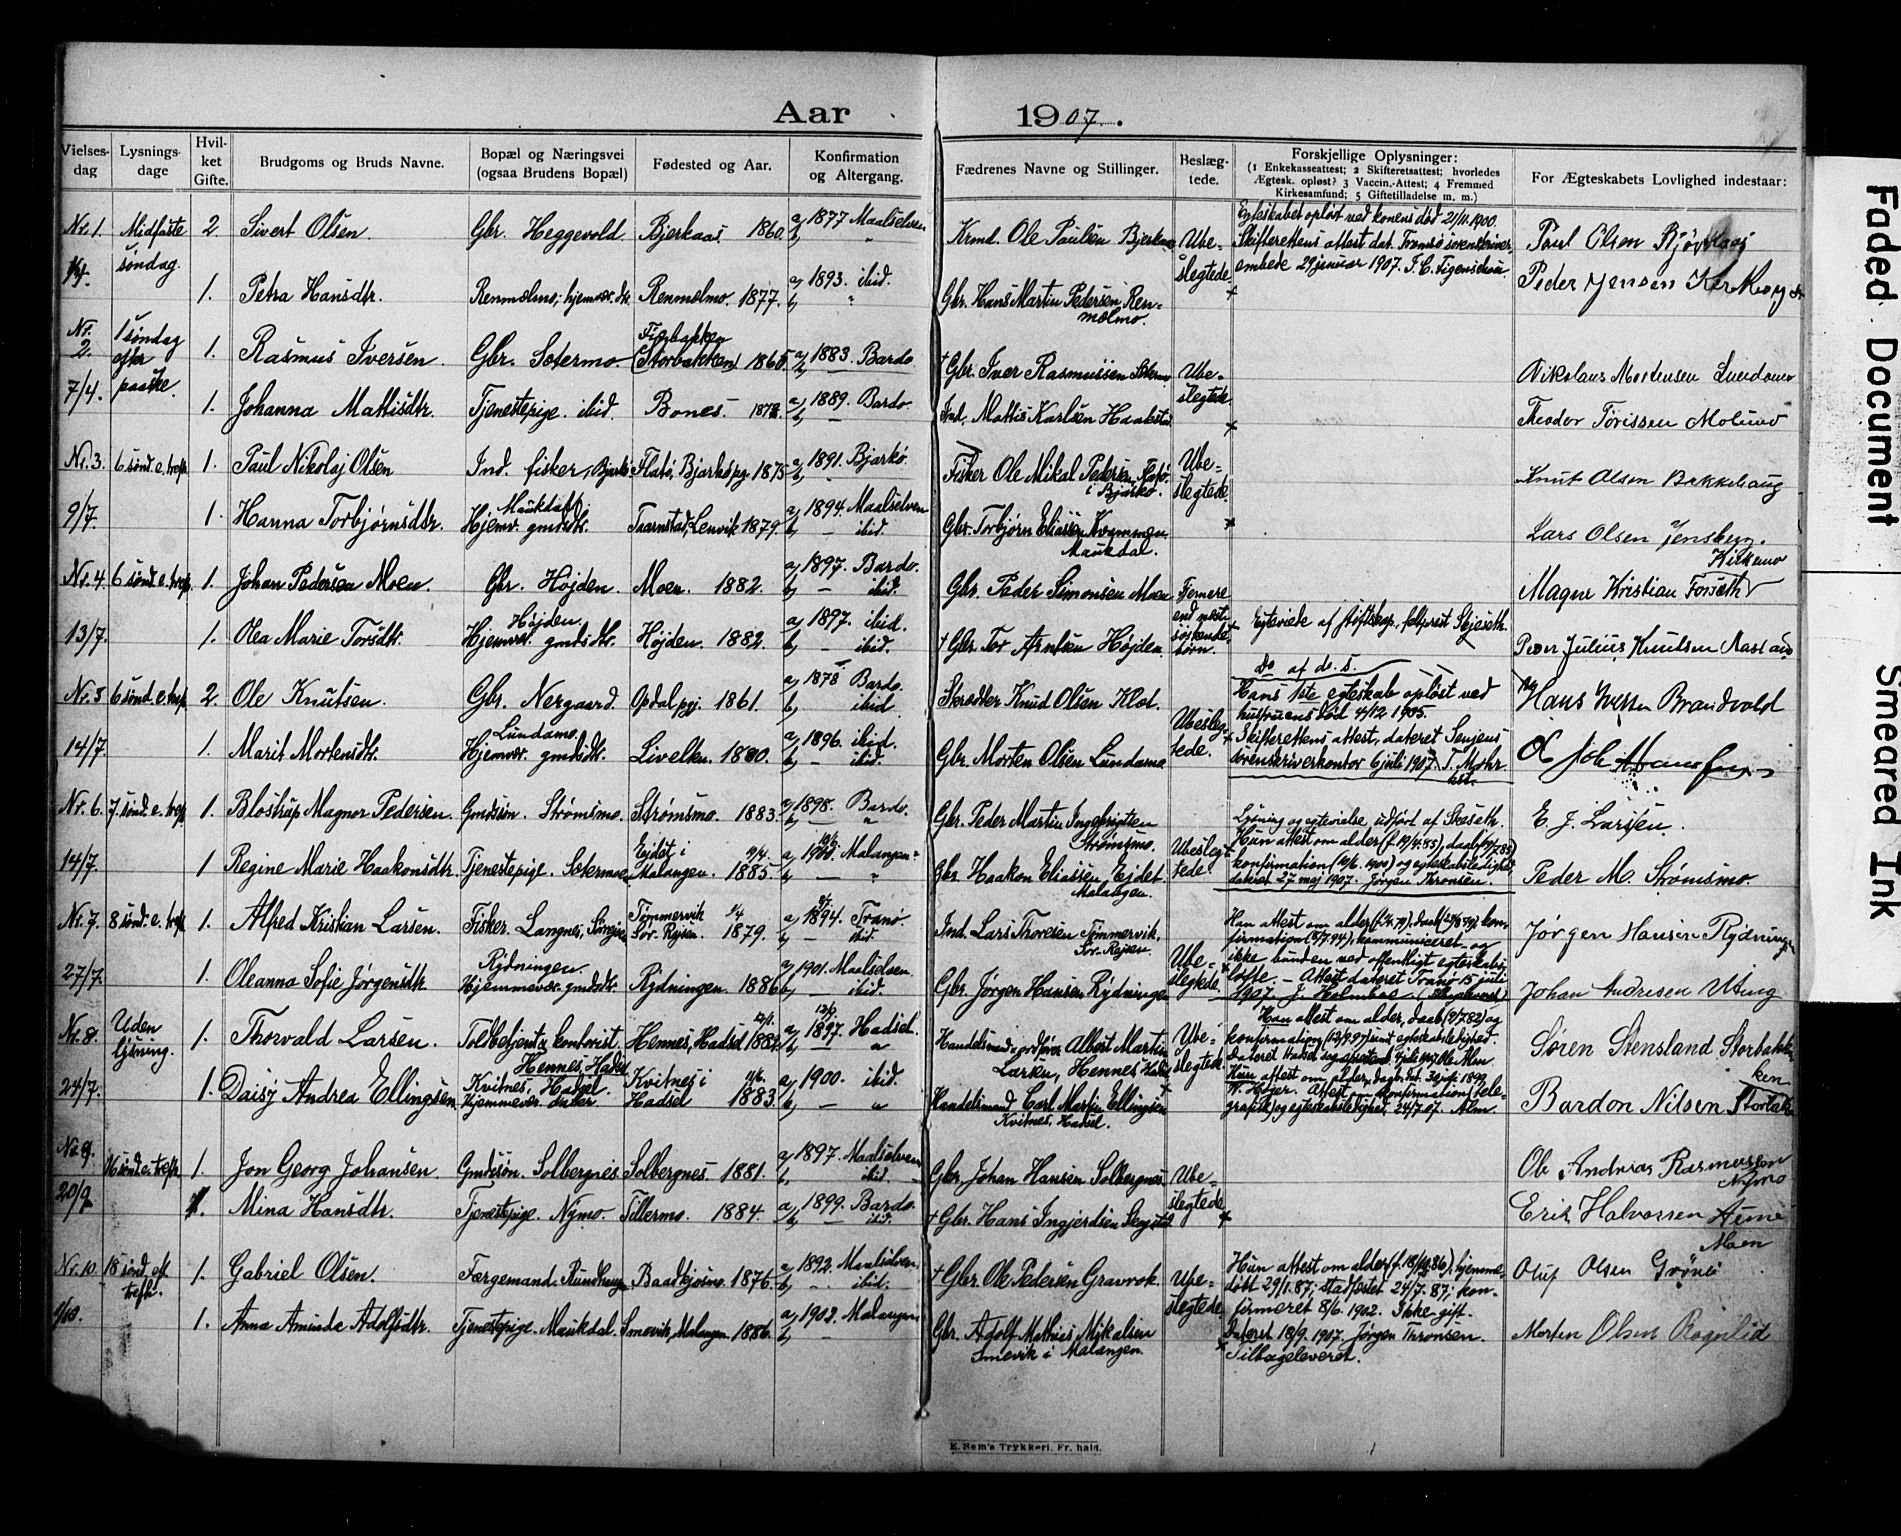 Aar 1907.
Vielses-dag
Lysnings-dage
Hvil-ket Gifte.
Brudgoms og Bruds Navne.
Bopæl og Næringsvei (ogsaa Brudens Bopæl)
Fødested og Aar.
Konfirmation og Altergang.
Fædrenes Navne og Stillinger.
Beslæg-tede.
Forskjellige Oplysninger: (1 Enkekasseattest; 2 Skifteretsattest; hvorledes Ægtesk. opløst? 3 Vaccin.-Attest; 4 Fremmed Kirkesamfund; 5 Giftetilladelse m. m.)
For Ægteskabets Lovlighed indestaar:
Nr. 1. Midfaste søndag. 2 Sivert Olsen. Gbr. Heggevold. Bjerkaas. 1860. a, 1877 Maalselven b, " Krmd. Ole Paulsen Bjerkaas Ube-slegtede
Egteskabet opløst ved konens død 21/11.1900.
Skifterettens attest dat. Tromsø sorenskriver
embede 29 januar 1907. F. C. Figenschou.
Paul Olsen
Peder Jensen Kirkemo
1. Petra Hansdtr. Renmælmo, hjemvær. dtr. Renmælmo. 1877. a, 1893. ibid. b, " Gbr. Hans Martin Pedersen, Ren-mælmo.
Nr. 2. 1 søndag efter paaske. 1. Rasmus Iversen Gbr. Sætermo. (Storbakken) 1865. a, 1883. Bardo b, — † Gbr. Iver Rasmussen Ube-slegtede
Nikolaus Mortensen Lundamo
7/4. 1. Johanna Mattisdtr. Tjenestepige. ibid. Bones. 187 a, 1889. Bardo. b, — Ind. Mattis Karlsen
Theodor Tørissen Molund
Nr. 3. 6 sønd. e. tref. 1. Paul Nikolaj Olsen Ind. fisker, Bjarkø Flatø, Bjarkø pg. 1875 a, 1891. Bjarkø. b, Fisker Ole Mikal Pedersen Flatø i Bjarkø. Ube-slegtede
Knut Olsen Bakkehaug
9/7. 1. Hanna Torbjørnsdtr. Maukdal Hjemv. gmdsdtr. Taarnstad, Lenvik 1879. a, 1894. Maalselven b, — ibid. Gbr. Torbjørn Eliassen Kvammen Maukdal.
Lars Olsen Jensberg.
Kirkemo
Nr. 4. 6 sønd. e. tref. 1. Johan Pedersen Moen. Gbr. Højden. Moen. 1882. a, 1897. Bardo. b, — ibid. Gbr. Peder Simonsen Moen Fjernere end næst-søskende-børn.
Magne Kristian Forseth
13/7. 1. Olea Marie Torsdtr. Højden. Hjemvær. gmdsdtr. Højden. 1882. a, 1897. ibid. b, — ibid. † Gbr. Tor Arntsen Højden.
Egteviede af stiftskap. feltprest Skjeseth.
Peder Julius Knutsen
Do af do. s.
Nr. 5 6 sønd. e. tref. 2. Ole Knutsen. Gbr. Nergaard. Opdal pgj. 1861. a, 1878 Bardo. b, — ibid Skrædder Knud Olsen Klot. Ubesleg-tede.
Hans 1ste egteskab opløst ved
hustruens død 4/12 1905.
Skifterettens attest, dateret Senjens
sorenskriverkontor 6 juli 1907. T. Mohr.
kst.
Hans Iversen Brandvold
14/7. 1. Marit Mortensdtr. Lundamo. Hjemvær. gmdsdtr. Livelten. 1880. a, 1896. ibid. b, — ibid. Gbr. Morten Olsen Lundamo
Nr. 6. 7. sønd. e. tref. 1. Blostrup Magnor Pedersen. Gmdssøn. Strømsmo. Strømsmo. 1883. a, 1898. Bardo. b, — " Gbr. Peder Martin Ingebrigtsen Strømsmo. Ubesleg-tede.
Lysning og egtevielse udført af Skeseth.
Hun attest om alder (f. 19/4.85), daab
konfirmation (10/6. 1900) og egteskabsledighed
dateret 27 maj 1907. Jørgen Thronsen.
E. J. Larssen.
14/7. 1 Regine Marie Haakonsdtr. Tjenestepige. Sætermoen Ejdet i Malangen. 19/4. 1885. a, 1900. Malangen. b, — " Gbr. Haakon Eliassen Ejdet. Malangen.
Peder M. Strømsmo.
Nr. 7. 8 sønd. e. tref. 1. Alfred Kristian Larsen. Fisker. Langnes, Tømmervik Sør. Rejsen. 1/4 1879. a, 1894. Tranø. b, — ibid. Ind. Lars Thoresen Tømmervik, Sør. Rejsen. Ube-slegtede
Han attest om alder, daab, kon-
firmation (8/7.94), kommuniceret og
ikke bunden ved offentligt egteskabs-
løfte. — Attest dateret Tranø 15 juli
1907. J. Holmboe.
Jørgen Hansen Rydningen
27/7. 1. Oleanna Sofie Jørgensdtr. Rydningen. Hjemmevær. gmdsdtr. Rydningen 1886 a, 1901. Maalselven. b, — ibid. Gbr. Jørgen Hansen Rydningen
Johan Andresen Uting
Nr. 8. Uden lysning. 1. Thorvald Larsen. Toldbetjent & kontorist. Hennes, Hadsel Hennes, Hadsel a, 1897. Hadsel. b, — " Handelsmand Albert Martin Larsen, Hennes Hadsel Ube-slegtede
Han attest om alder, daab og
konfirmation (12/9.97) samt egteskabsledighed.
Søren Stensland Storbakken
24/7. 1. Daisy Andrea Ellingsen. Kvitnes, Hadsel. Hjemmevær. datter. Kvitnes i Hadsel 1883. a, 1900. ibid. b, — " Handelsmand Carl Martin Ellingsen Kvitnes, Hadsel.
Bardon Nilsen Storbakken
Nr. 9. 16 sønd. e. trefr. 1. Jon Georg Johansen. Gmdssøn. Solbergnes. Solbergnes. 1881. a, 1897. Maalselven b, ibid. Gbr. Johan Hansen Solbergnes. Ube-slegtede
Ole Andreas Rasmussen
Nymo
20/9 1. Mina Hansdtr. Tjenestepige. Nymo. Tillermo. 1884. a, 1899. Bardo. b, ibid. † Gbr. Hans Ingjerdsen
Erik Halvorsen Aune
Moen
Nr. 10 18 sønd. ef. trefr. 1. Gabriel Olsen. Færgemand, Rundhaug, 1876. a, 1892. Maalselven. b, ibid. † Gbr. Ole Pedersen Gravrok. Ube-slegtede
Hun attest om alder, hjemme-
døbt 29/1.87; stadfæstet 24/7.87; kon-
firmeret 8/6. 1902. Ikke gift.
Dateret 18/9. 1907. Jørgen Thronsen.
Tilbageleveret.
Oluf Olsen Grønli
1/10. 1. Anna Aminda Adolfsdtr. Tjenestepige. Maukdal. Smevik, Malangen 1886. a, 1902. Malangen b, — Gbr. Adolf Mathias Mikalsen Smevik i Malangen.
Morten Olsen Rognlid
E. Sem's Trykkeri, Fr.hald.
Faded Document
Smeared Ink